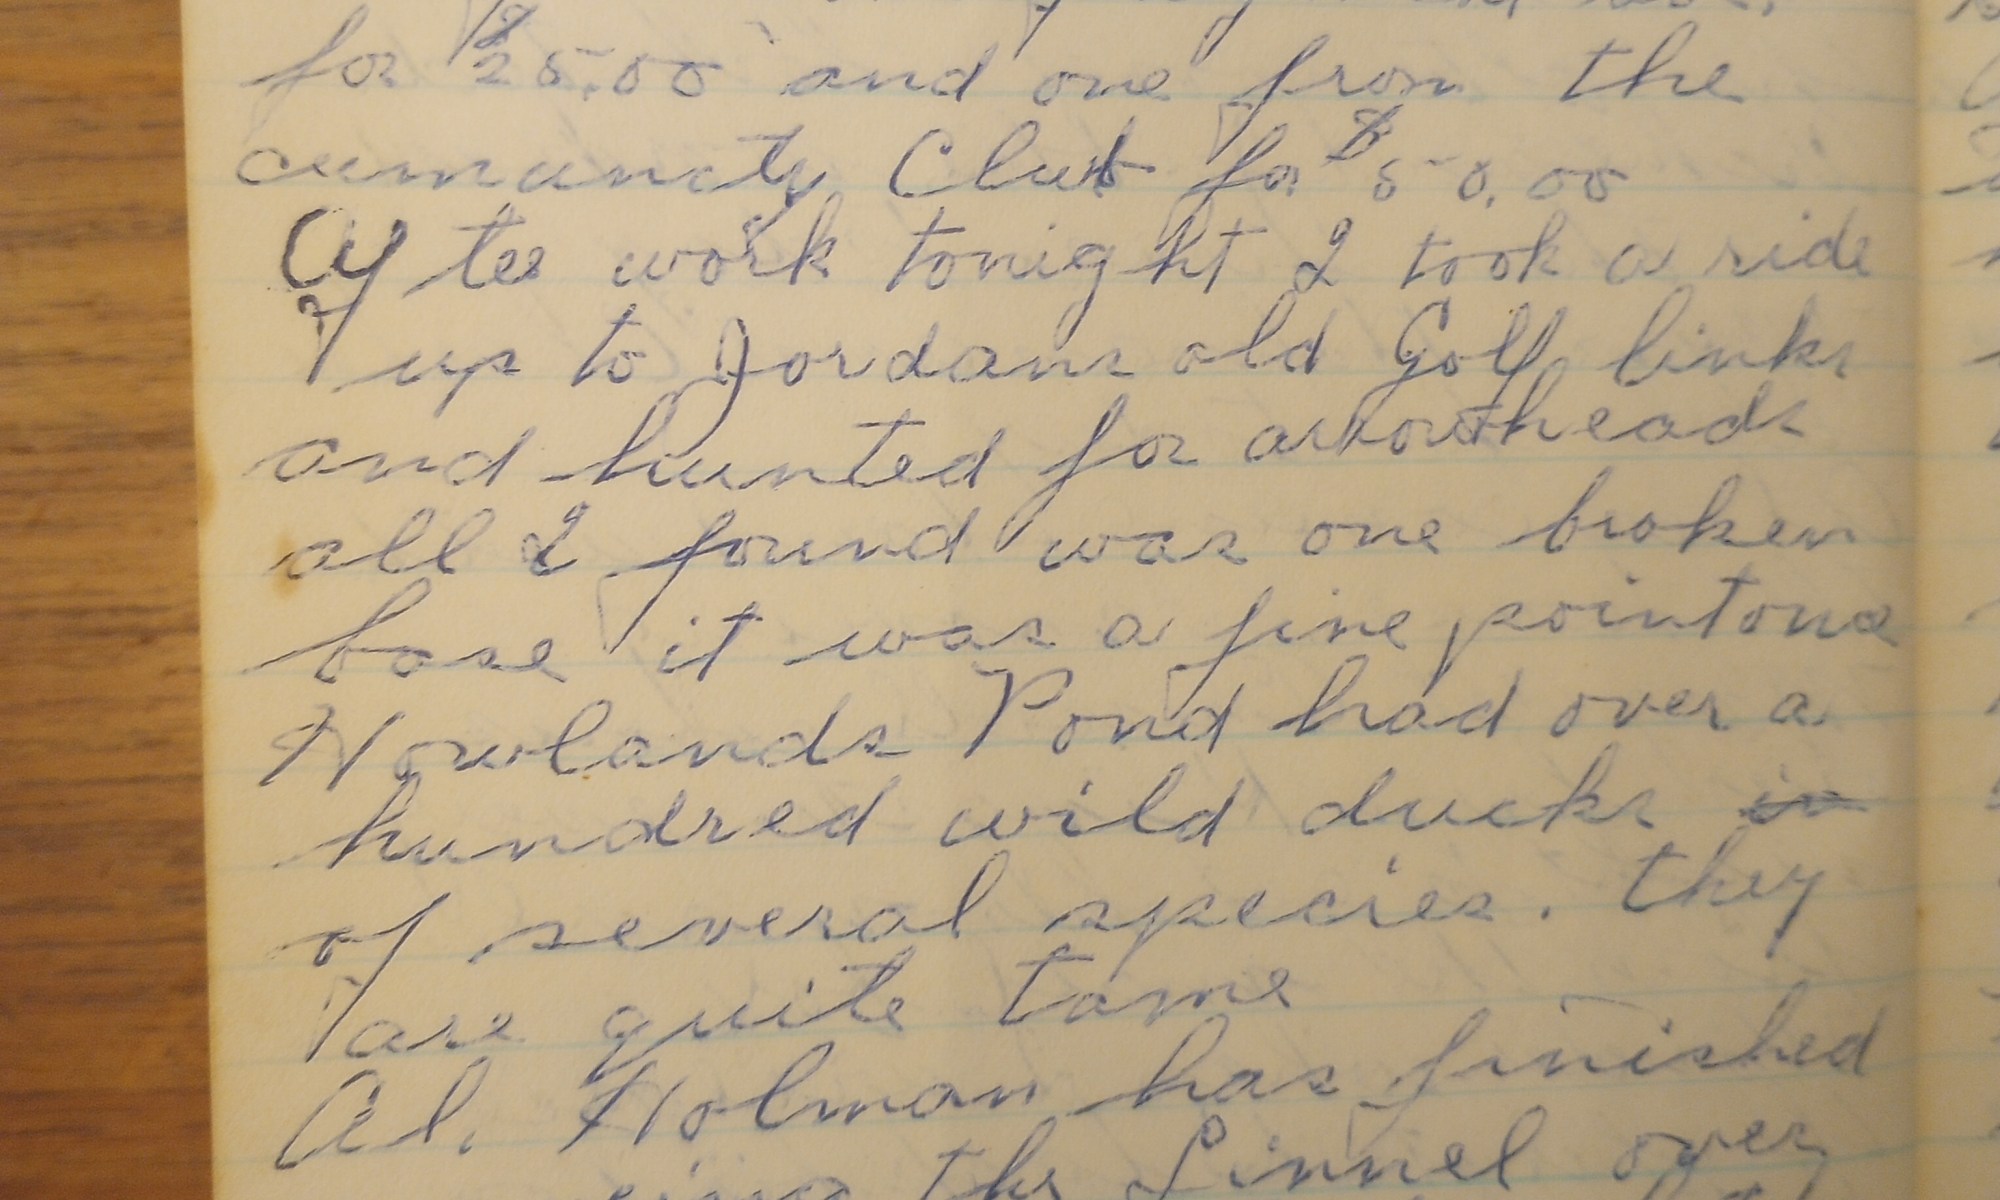 for $25.00 and one from the
cumunity Club for $50.00
After work tonight I took a ride
up to Jordans old Golf links
and hunted for arrowheads
all I found was one broken
base it was a fine point once
Howlands Pond had over a
hundred wild ducks in
of several species. they
are quite tame
Al. Holman has finished
the Linnel over